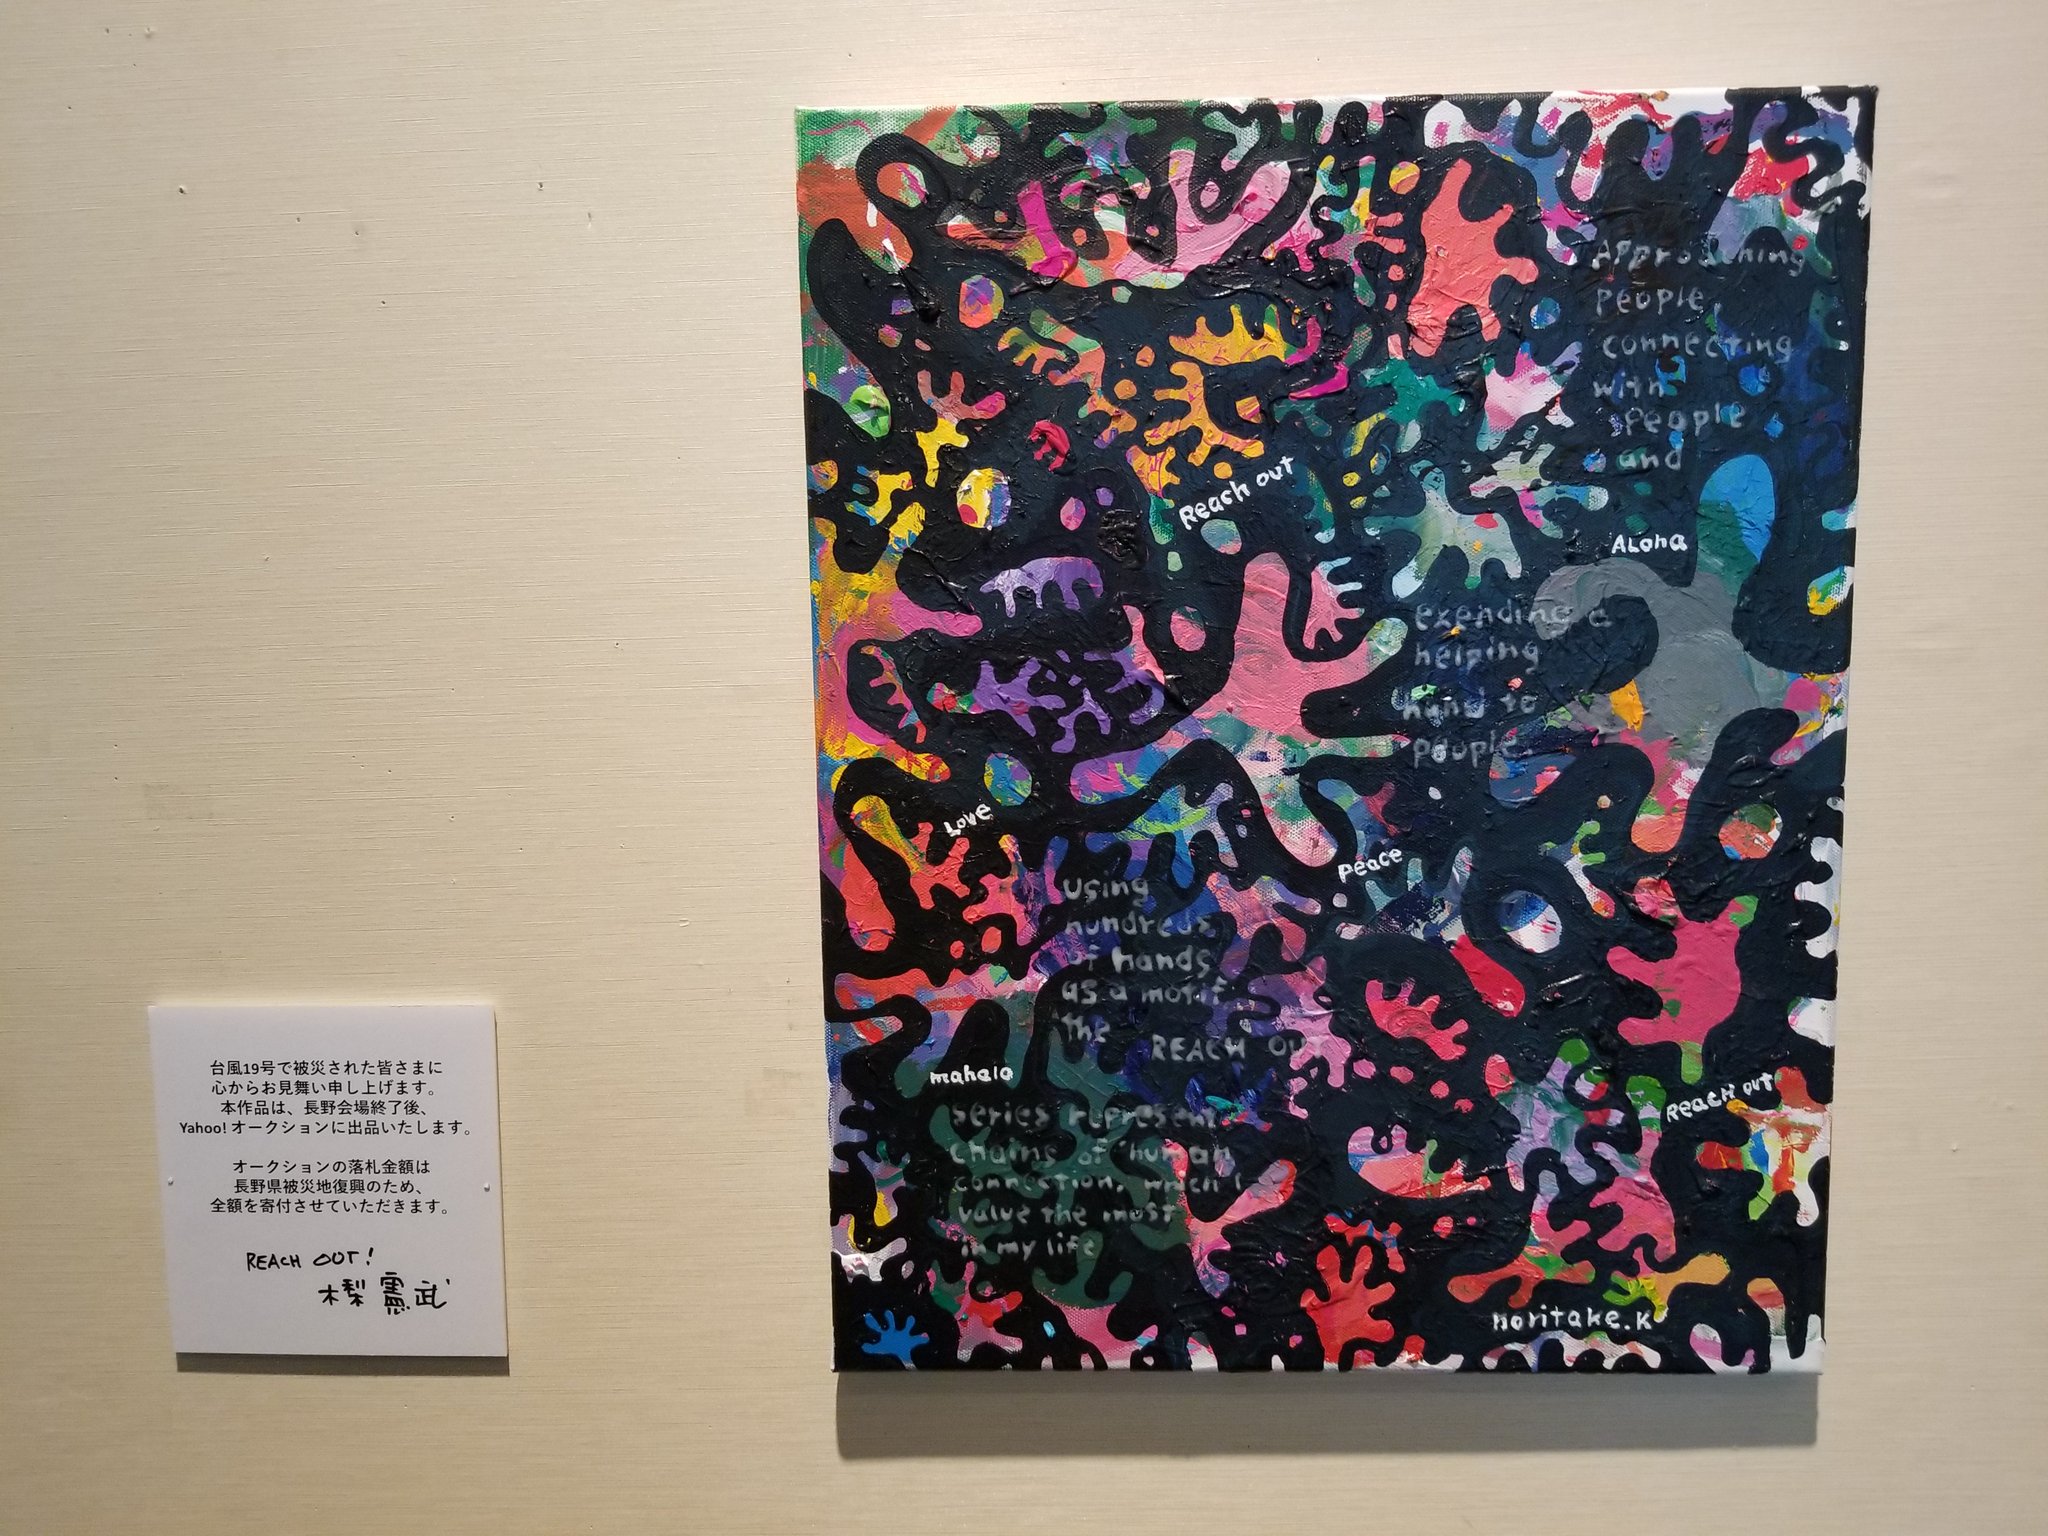 台風19号で被災された皆さまに
心からお見舞い申し上げます。
本作品は、長野会場終了後、
Yahoo! オークションに出品いたします。
オークションの落札金額は
長野県被災地復興のため、
全額を寄付させていただきます。
REACH OUT!
木梨 憲武
Approaching
people,
connecting
with
people
and
Reach out
ALoha
exending a
helping
hand to
people.
Love
Peace
Using
hundreds
of hands
as a motif
the REACH OUT
mahalo
Reach out
series represent
chains of human
connection, which I
value the most
in my life
noritake.K